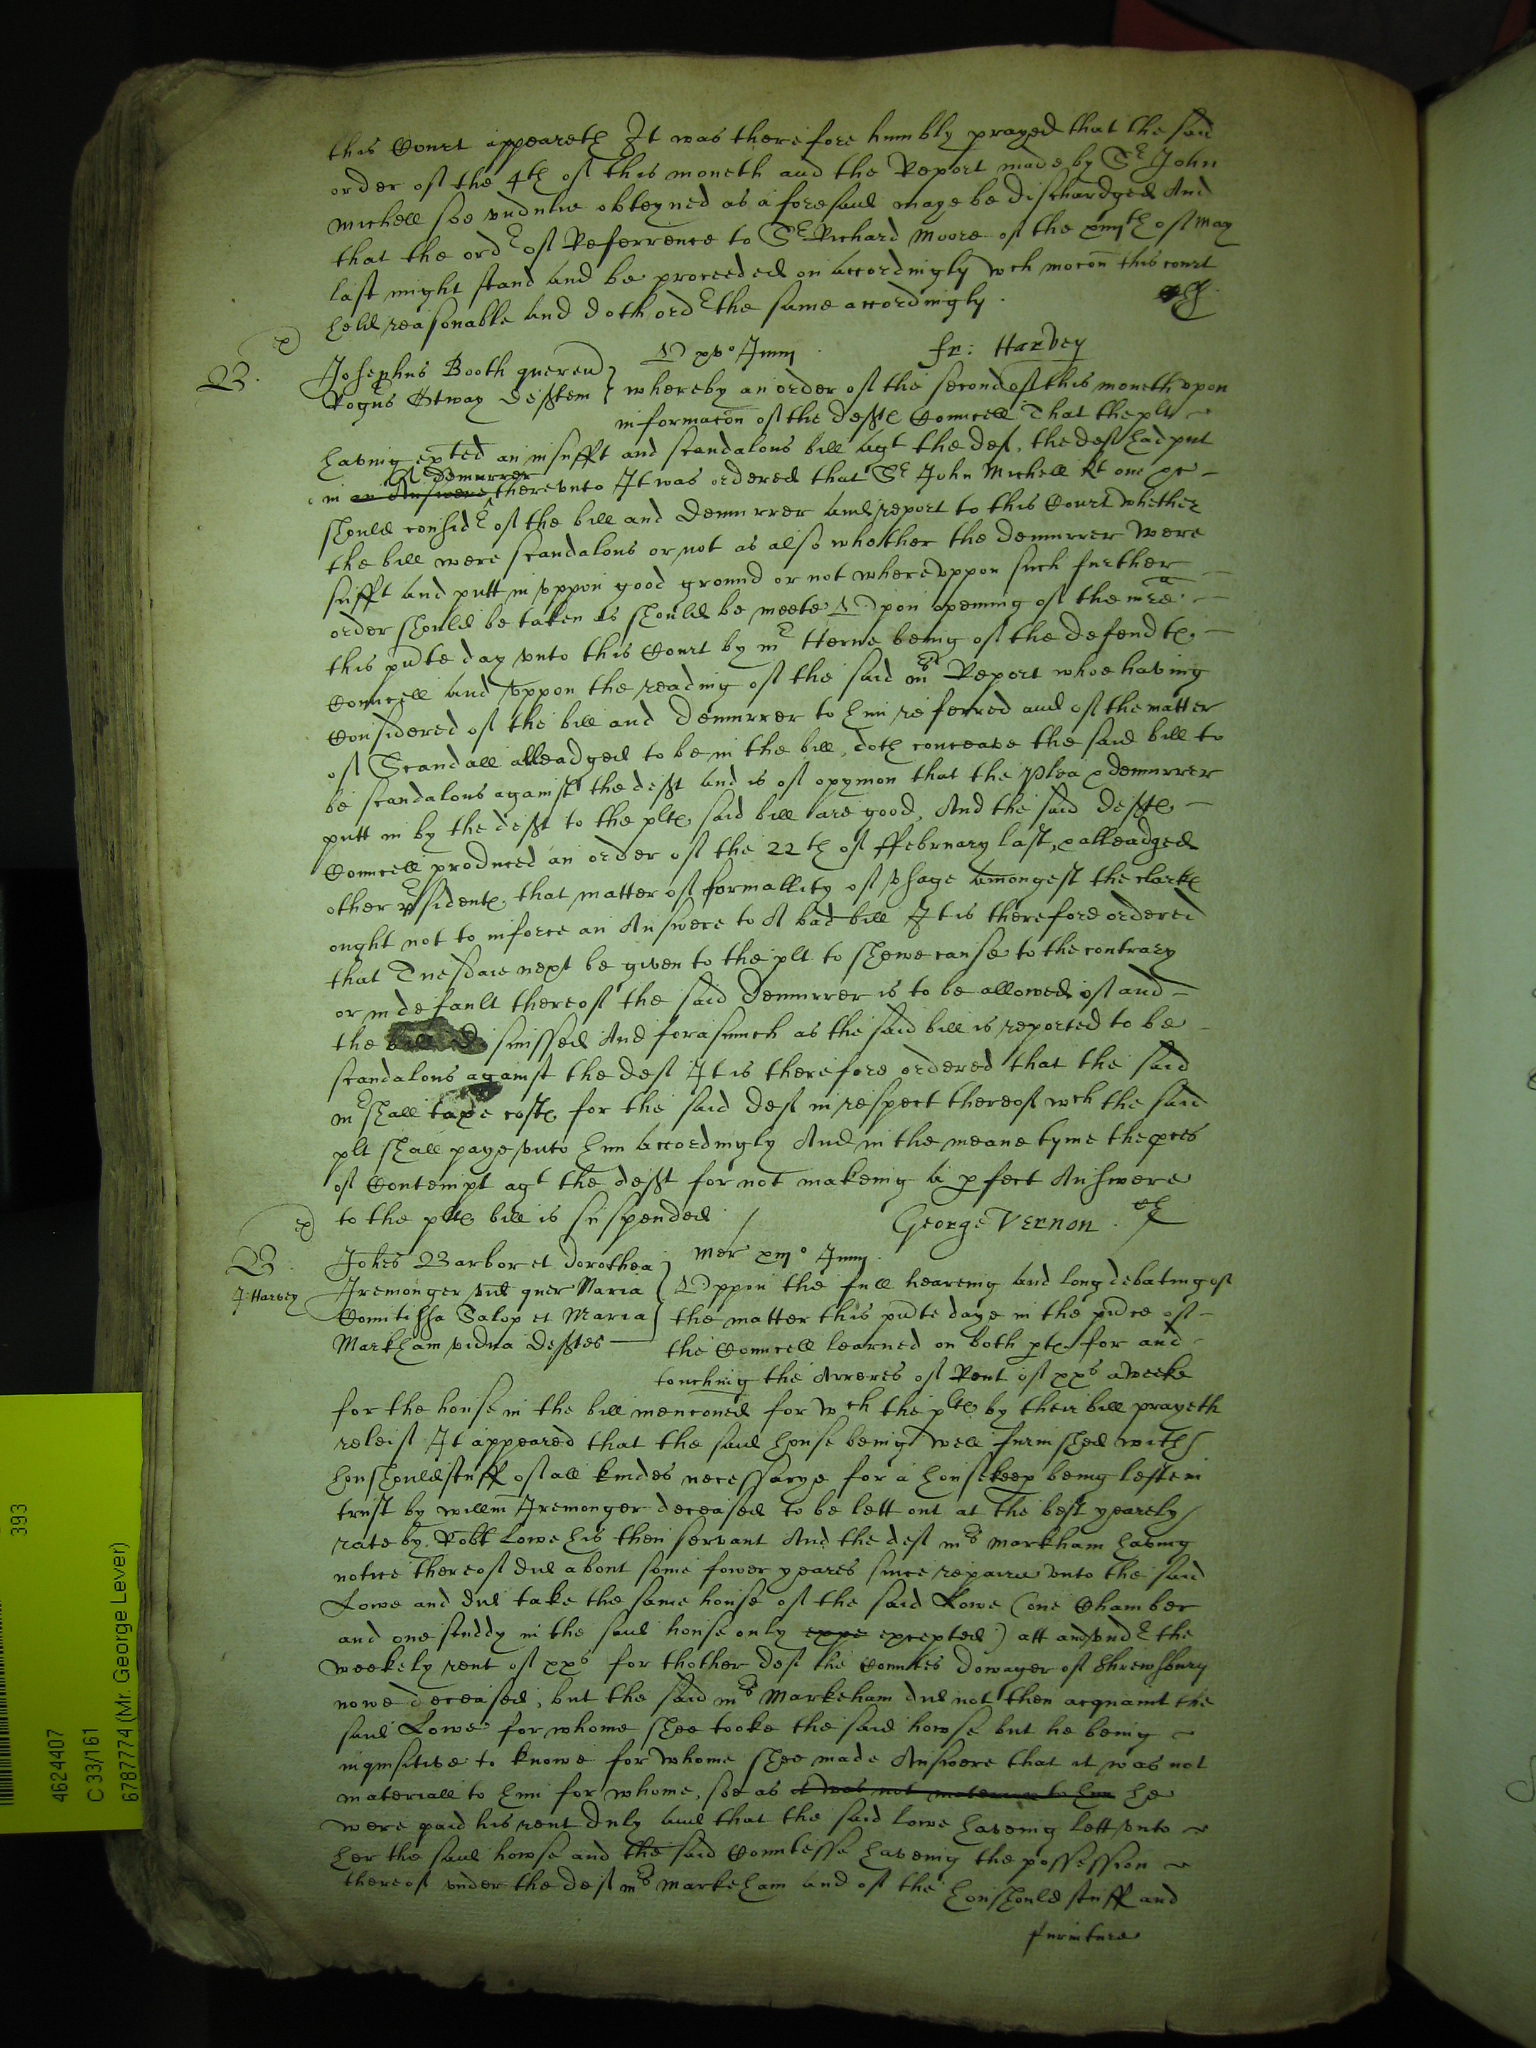 this Court appeareth It was therefore humbly prayed that the said
order of the 4th of this moneth and the Report made by Sr John
Michell soe undulie obteyned as aforesaid maye be dischardged And
that the ordr of Referrence to Sr Richard Moore of the xiiijth of May
last might stand and be proceeded on accordingly wch mocōn this court
held reasonable and doth ordr the same accordingly.
B.
D xv° Junij
fr: Harvey
Josephus Booth queren
Rogus Otway defftem
whereby an order of the second of this moneth upon
informacōn of the defftℯ Councell That the plt
having exted an insufft and scandalous bill agt the def. the def had put
in an Answere Demurrer thereunto It was ordered that Sr John Michell Kt one &c
should considr of the bill and Demurrer and report to this Court whether
the bill were scandalous or not as also whether the demurrer were
sufft and putt in uppon good ground or not whereuppon such further
order should be taken as should be meete Upon opening of the mre
this pnte day unto this Court by mr Herne being of the defendtℯ
Councell and uppon the reading of the said mrs Report whoe having
Considered of the bill and Demurrer to him referred and of the matter
of Scandall alleadged to be in the bill, doth conceave the said bill to
be scandalous against the defft and is of opynion that the Plea & demurrer
putt in by the defft to the pltℯ said bill are good, And the said defftℯ
Councell produced an order of the 22th of ffebruary last, & alleadged
other psidentℯ, that matter of formallity of usage amongest the clarkℯ
ought not to inforce an Answere to A bad bill It is therefore ordered
that Tuesdaie next be given to the plt to shewe cause to the contrary
or in default thereof the said Demurrer is to be allowed of and
the bill dismissed And forasmuch as the said bill is reported to be
scandalous against the def It is therefore ordered that the said
mr shall taxe costℯ for the said def in respect thereof wch the said
plt shall paye unto him accordingly And in the meane tyme the pces
of Contempt agt the defft for not makeing a pfect Answere
to the pltℯ bill is suspended /
George Vernon.
B.
J: Harvey
Mer xiij° Junij.
Johes Barbor et Dorothea
Iremonger vid quer Maria
Comitissa Salop et Maria
Markham vidua defftes
Uppon the full heareing and long debating of
the matter this pnte daye in the pnce of
the Councell learned on both ptℯ for and
touching the Arreres of Rent of xxs a weeke
for the house in the bill menconed for wch the pltℯ by their bill prayeth
releif It appeared that the said house being well furnished with
houshouldstuff of all kindes necessarye for a housekeep being left in
trust by Willm Iremonger deceased to be lett out at the best yearely
rate by Robt Lowe his then servant And the def mrs Markham having
notice thereof did about some fower yeares since repaire unto the said
Lowe and did take the same house of the said Lowe (one Chamber
and one studdy in the said house only expe excepted) att and undr the
weekely rent of xxs for thother def the Countes Dowager of Shrewsbury
nowe deceased, but the said mrs Markeham did not then acquaint the
said Lowe for whome shee tooke the said howse but he being
inquisitive to knowe for whome shee made Answere that it was not
materiall to him for whome, soe as it was not materiall to him he
were paid his rent duly and that the said Lowe haveing lett unto
her the said howse and the said Countesse haveing the possession
thereof under the def mrs Markeham and of the houshould stuff and
furniture
393
4624407
C 33/161
6787774 (Mr. George Lever)